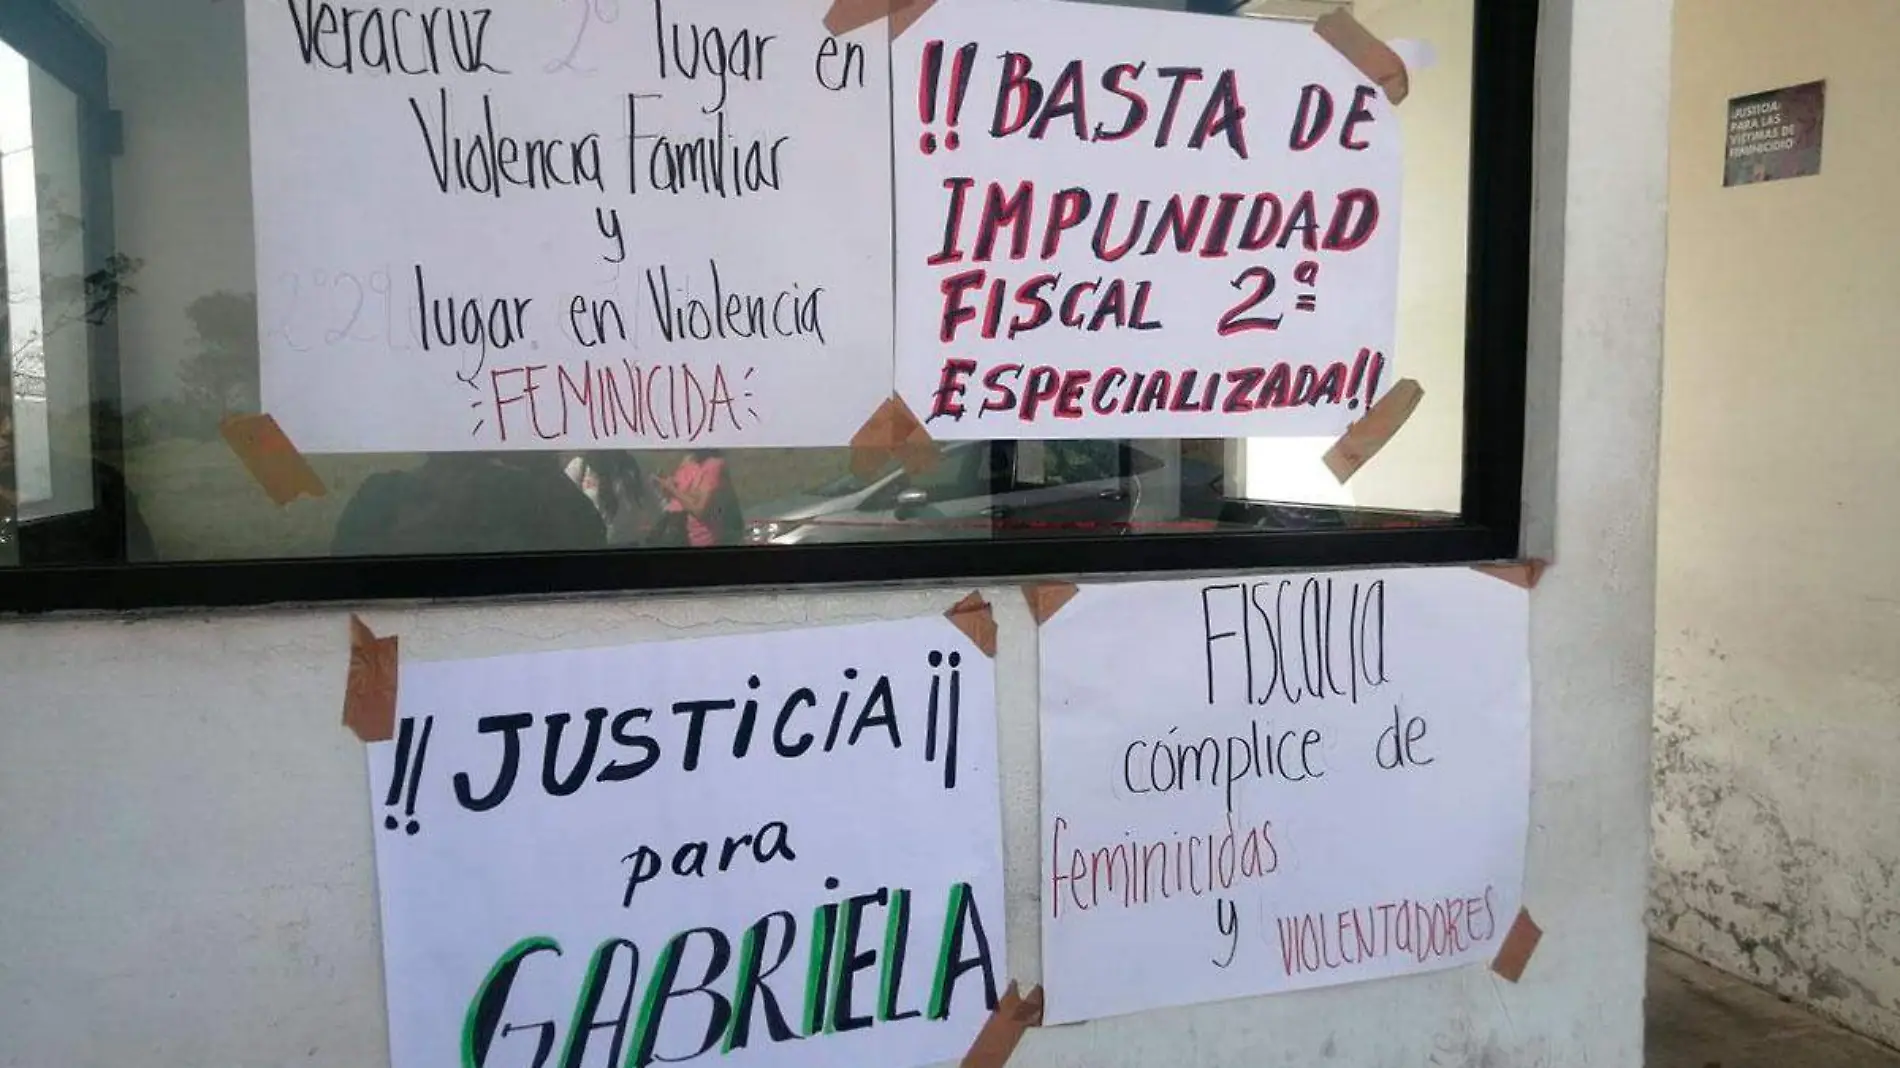 Veracruz 2º lugar en
Violencia Familiar
y
lugar en Violencia
FEMINICIDA
!!BASTA DE
IMPUNIDAD
FISCAL 2ª
ESPECIALIZADA!!
JUSTICIA
PARA LAS
VÍCTIMAS DE
FEMINICIDIO
!!JUSTiCiA¡¡
para
GABRiELA
FISCALIA
cómplice de
feminicidas
y VIOLENTADORES